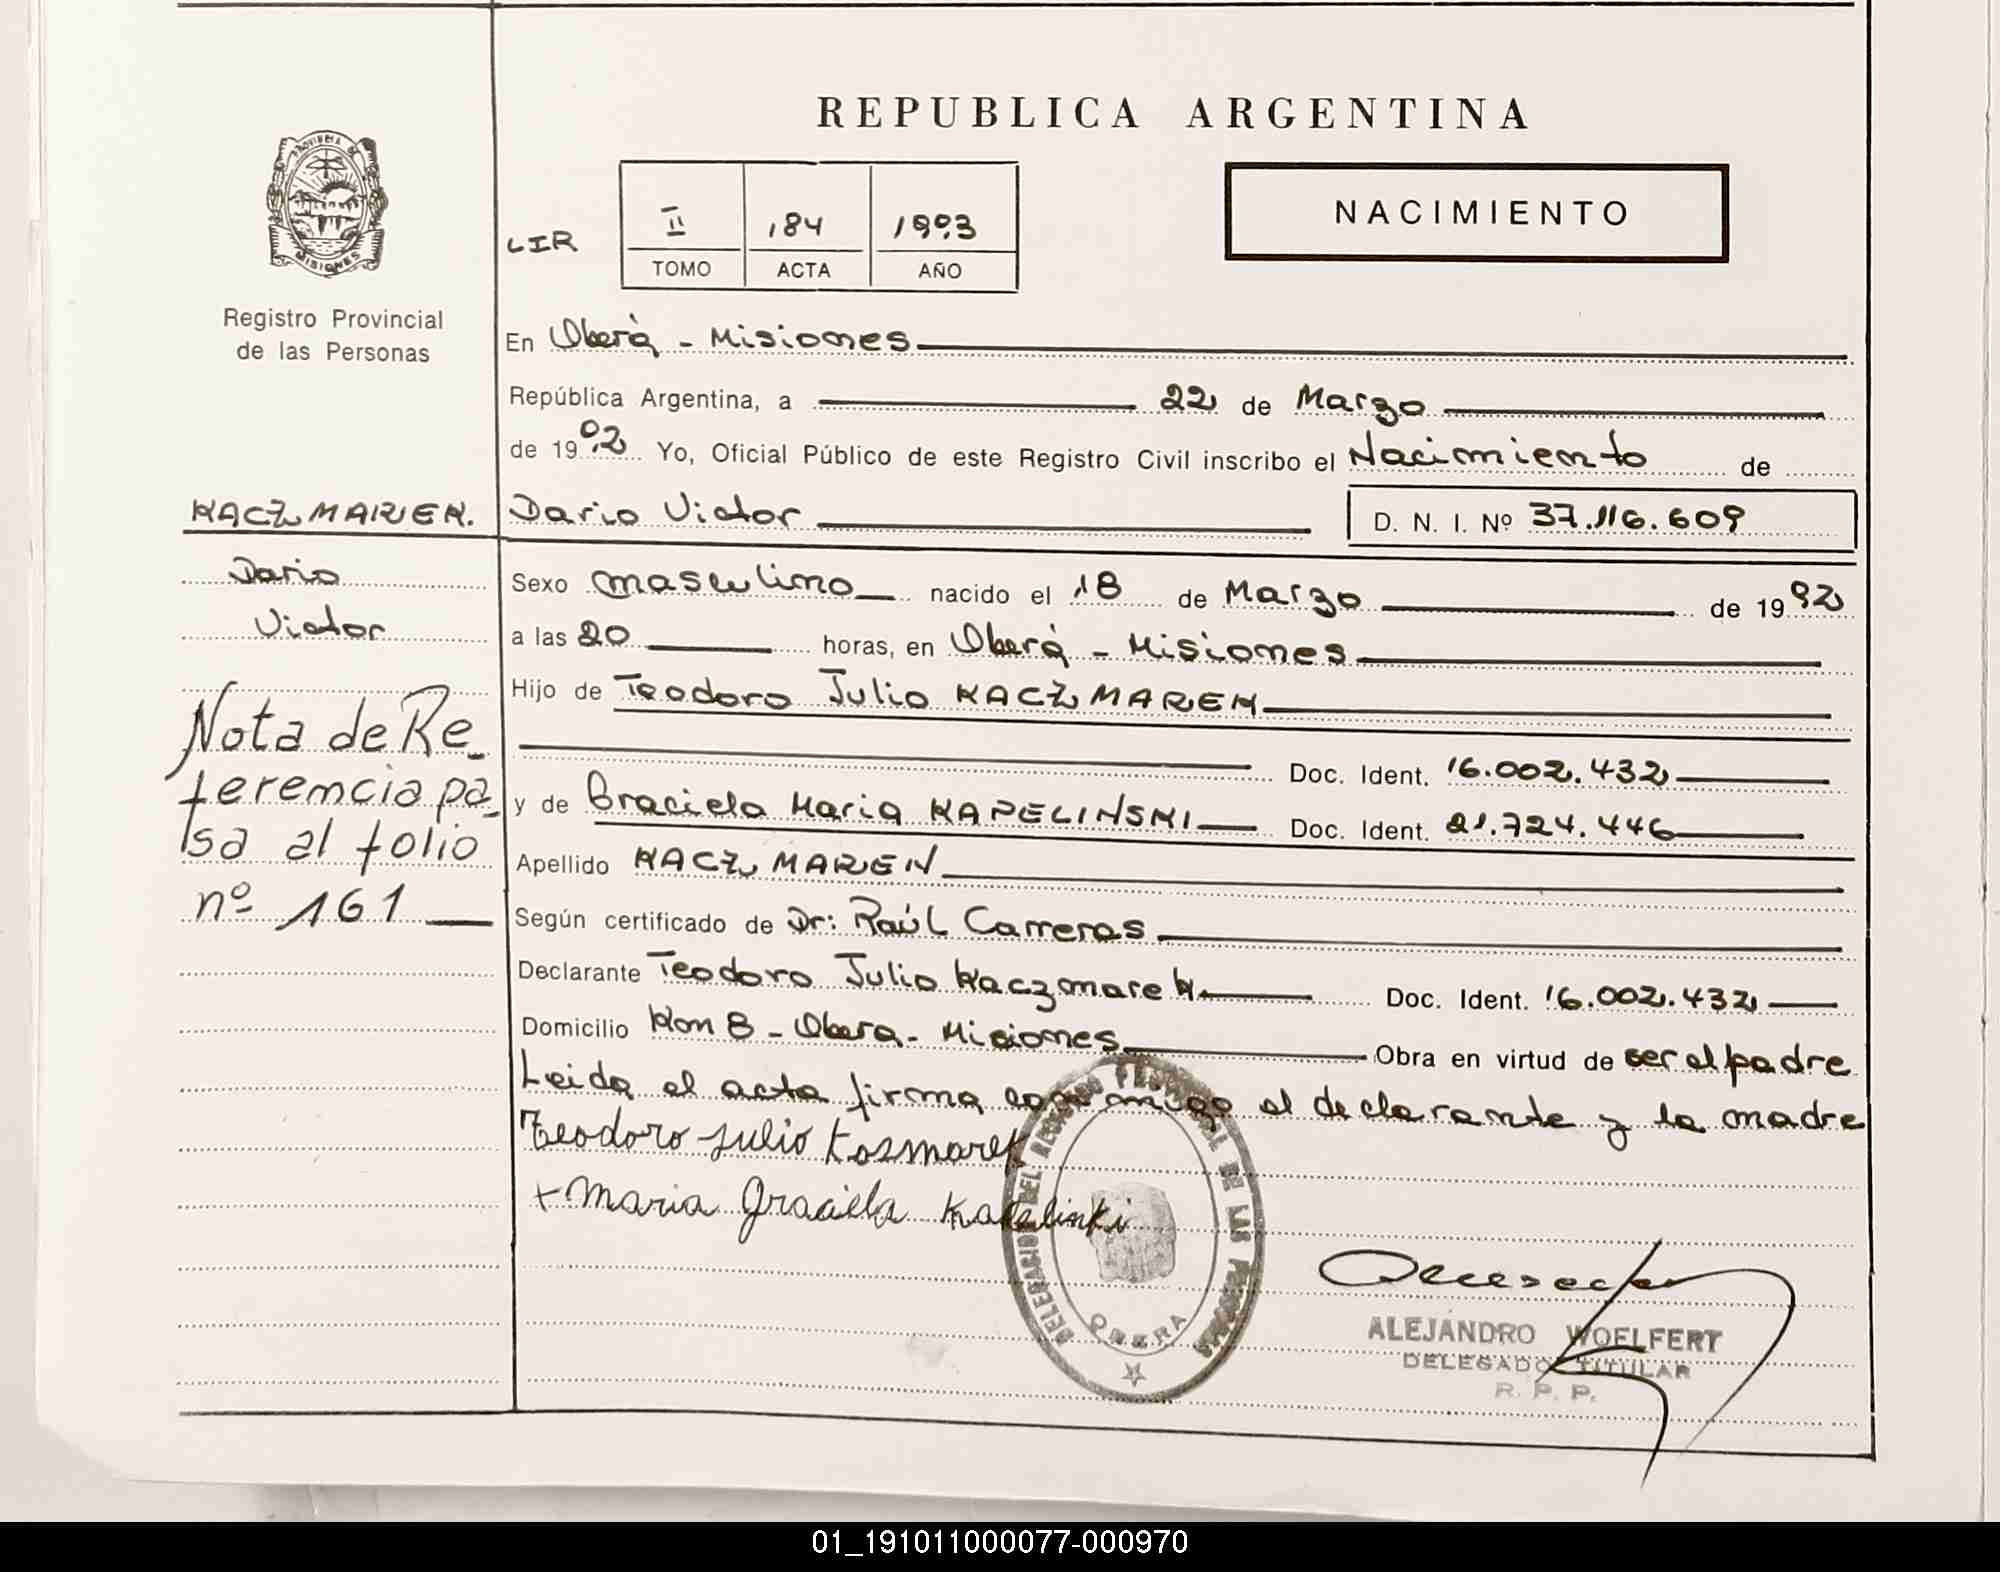 REPUBLICA ARGENTINA
PROVINCIA DE MISIONES
Registro Provincial
de las Personas
NACIMIENTO
LIR
II 184 1993
TOMO ACTA AÑO
En Oberá - Misiones
República Argentina, a 22 de Marzo
de 1992 Yo, Oficial Público de este Registro Civil inscribo el Nacimiento de
KACZMAREK. Dario Victor D. N. I. Nº 37.116.609
Dario
Victor
Sexo masculino nacido el 18 de Marzo de 1992
a las 20 horas, en Oberá - Misiones
Hijo de Teodoro Julio KACZMAREK
Doc. Ident. 16.002.432
y de Graciela Maria KAPELINSKI Doc. Ident. 21.724.446
Apellido KACZMAREK
Según certificado de Dr: Raúl Carreras
Declarante Teodoro Julio Kaczmarek Doc. Ident. 16.002.432
Domicilio Km 8 - Obera - Misiones Obra en virtud de ser el padre
Leida el acta firma conmigo el declarante y la madre
Nota de Re_
ferencia pa_
sa al folio
nº 161
Teodoro Julio Kozmarek
+ Maria Graciela Kapelinki
DELEGACION DEL REGISTRO PROVINCIAL DE LAS PERSONAS
OBERA
ALEJANDRO WOELFERT
DELEGADO TITULAR
R. P. P.
01_191011000077-000970